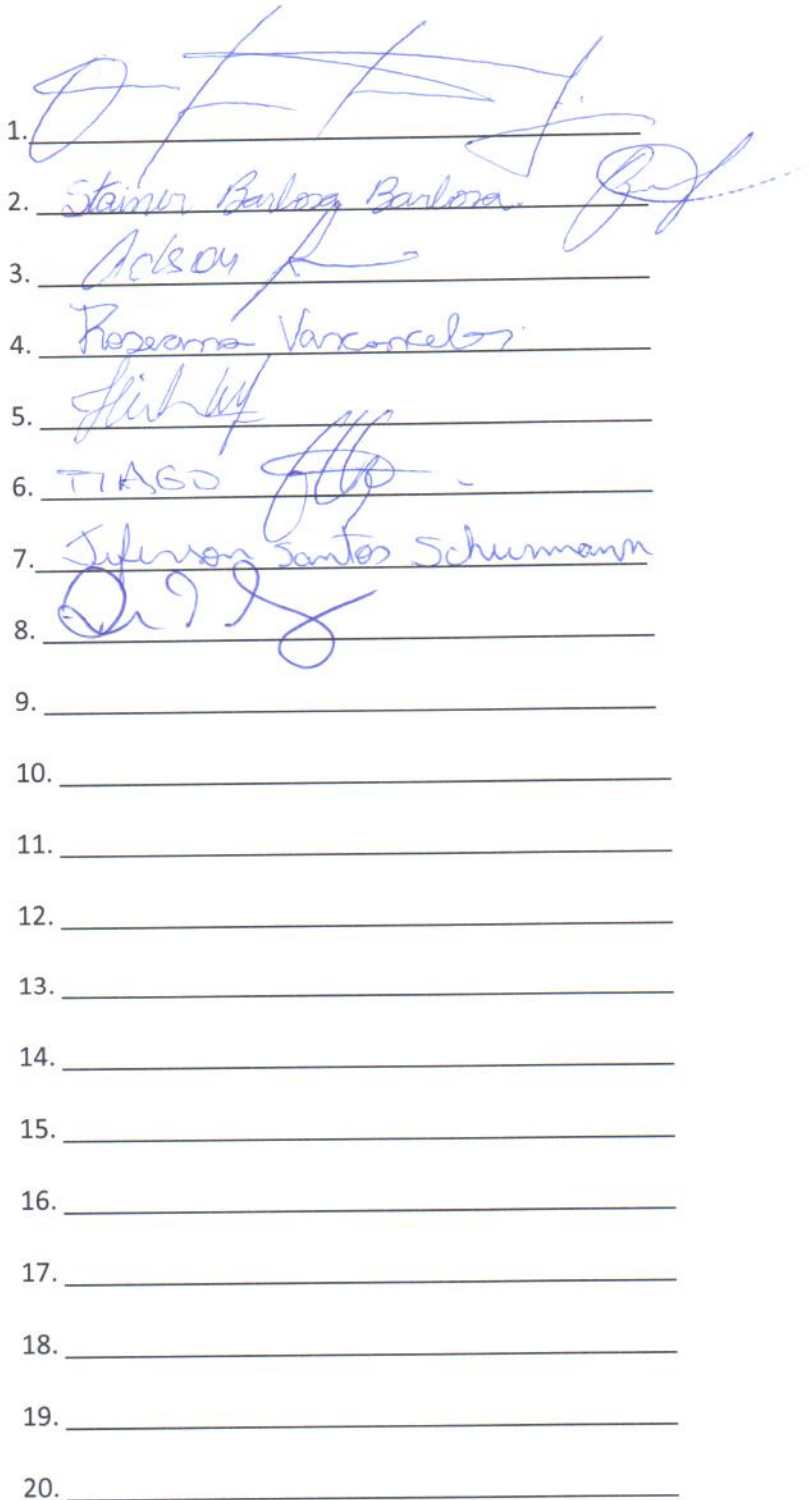 1.
2. Stainer Barbosa Barbosa.
3. Adson
4. Roseana Vasconcelos
5.
6. TIAGO
7. Jeferson Santos Schurmann
8.
9.
10.
11.
12.
13.
14.
15.
16.
17.
18.
19.
20.